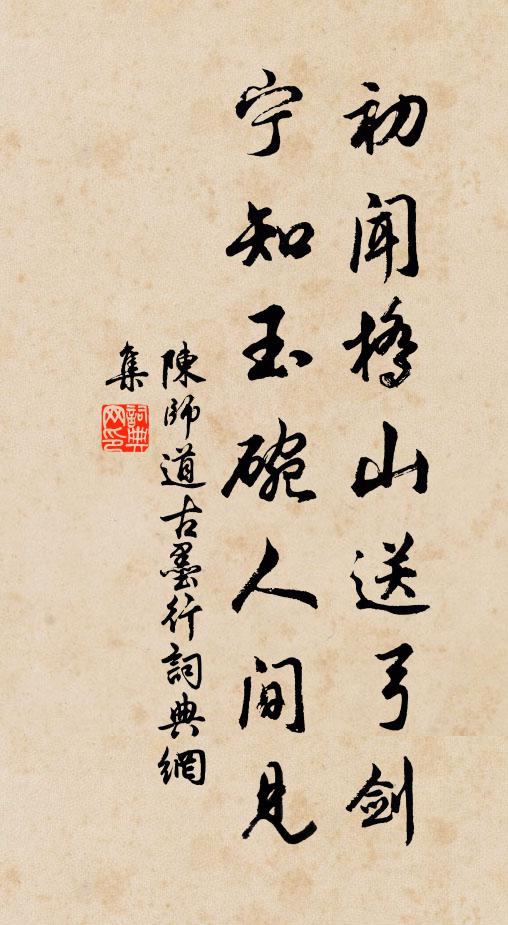 初闻桥山送弓剑
宁知玉碗人间见
陳師道古墨行詞典網
集
詞典网印